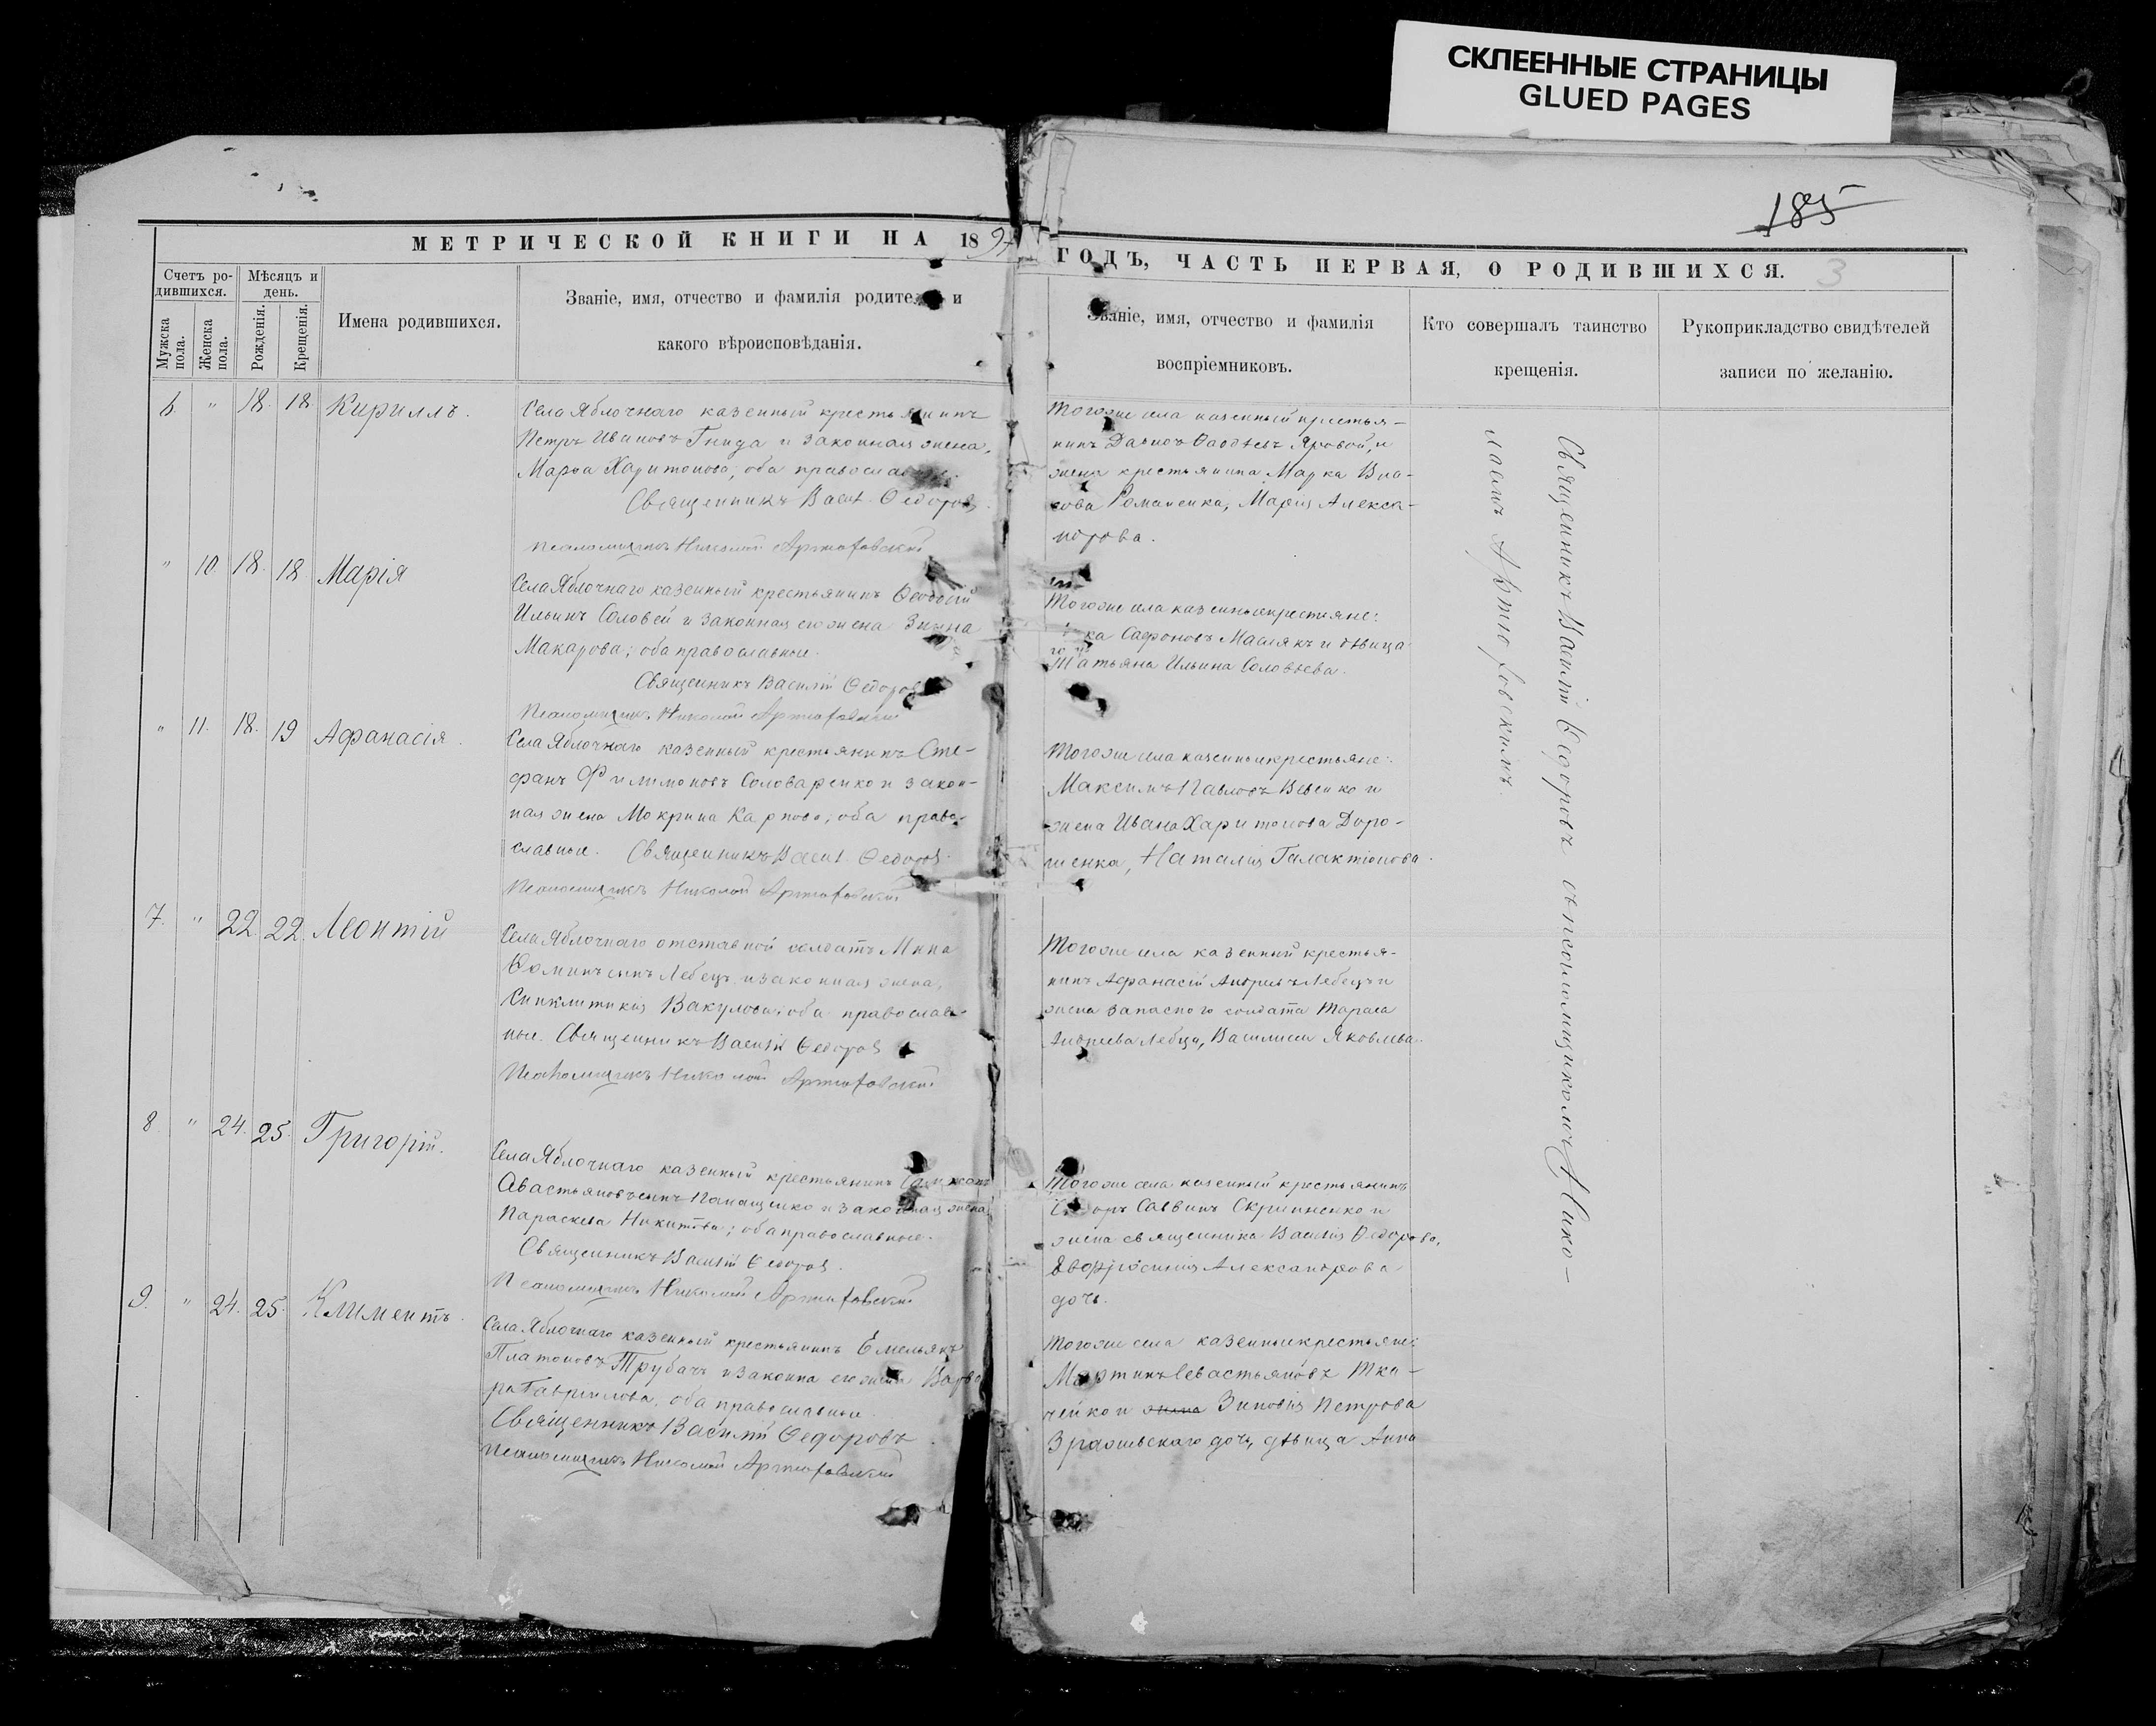 СКЛЕЕННЫЕ СТРАНИЦЫ
GLUED PAGES
185
3
МЕТРИЧЕСКОЙ КНИГИ НА 1897
ГОДЪ, ЧАСТЬ ПЕРВАЯ, О РОДИВШИХСЯ.
Счетъ ро-
дившихся.
Мѣсяцъ и
день.
Мужска
пола.
Женска
пола.
Рожденія.
Крещенія.
Имена родившихся.
Званіе, имя, отчество и фамилія родителей и
какого вѣроисповѣданія.
Званіе, имя, отчество и фамилія
воспріемниковъ.
Кто совершалъ таинство
крещенія.
Рукоприкладство свидѣтелей
записи по желанію.
6. " 18. 18. Кириллъ.
Села Яблочнаго казенный крестьянинъ
Петръ Ивановъ Гнида и законная жена,
Марѳа Харитонова; оба православные.
Священникъ Васил. Ѳедоровъ.
Псаломщикъ Николай Артюховскій
Тогоже села казенный крестья-
нинъ Давидъ Яровой, и
жена крестьянина Марка Вла-
сова Романенка, Марія Алекса-
ндрова.
" 10. 18. 18 Марія
Села Яблочнаго казенный крестьянинъ Ѳеодосій
Ильинъ Соловей и законная его жена
Макарова; оба православные.
Священникъ Василій Ѳедоровъ
Псаломщикъ Николай Артюховскій
Тогоже села казенные крестьяне:
Сафоновъ Маслякъ и дѣвица
Татьяна Ильина Соловьева.
" 11. 18. 19 Афанасія.
Села Яблочнаго казенный крестьянинъ Сте-
фанъ Филимоновъ Соловаренко и закон-
ная жена Мокрина Карпова; оба право-
славные. Священникъ Васил. Ѳедоровъ
Псаломщикъ Николай Артюховскій
Тогоже села казенные крестьяне:
Максимъ Павловъ и
жена Ивана Харитонова Доро-
шенка, Наталія Галактіонова.
7. " 22. 22. Леонтій
Села Яблочнаго отставной солдатъ Мина
Ѳоминъ сынъ Лебецъ и законная жена,
Синклитикія Вакулова, оба православ-
ные. Священникъ Василій Ѳедоровъ
Псаломщикъ Николай Артюховскій
Тогоже села казенный крестья-
нинъ Афанасій Лебецъ и
жена запаснаго солдата Тараса
Андреева Лебца, Василиса Яковлева.
8. " 24. 25. Григорій.
Села Яблочнаго казенный крестьянинъ
Авастьяновъ сынъ Панащенко и законная жена
Параскева Никитова; оба православные.
Священникъ Василій Ѳедоровъ.
Псаломщикъ Николай Артюховскій
Тогоже села казенный крестьянинъ
Саввинъ Скрипненко и
жена священника Василія Ѳедорова,
Евфросинія Александрова
дочь.
9. " 24. 25. Климентъ.
Села Яблочнаго казенный крестьянинъ Емельянъ
Платоновъ Трубачъ и законна его жена Варва
ра Гаврилова, оба православные.
Священникъ Василій Ѳедоровъ
Псаломщикъ Николай Артюховскій
Тогоже села казенные крестьяне:
Мартинъ Севастьяновъ Тка-
ченко и жена Зиновія Петрова
дочь, дѣвица Анна
Священникъ Василій Ѳедоровъ съ псаломщикомъ Нико-
лаемъ Артюховскимъ.